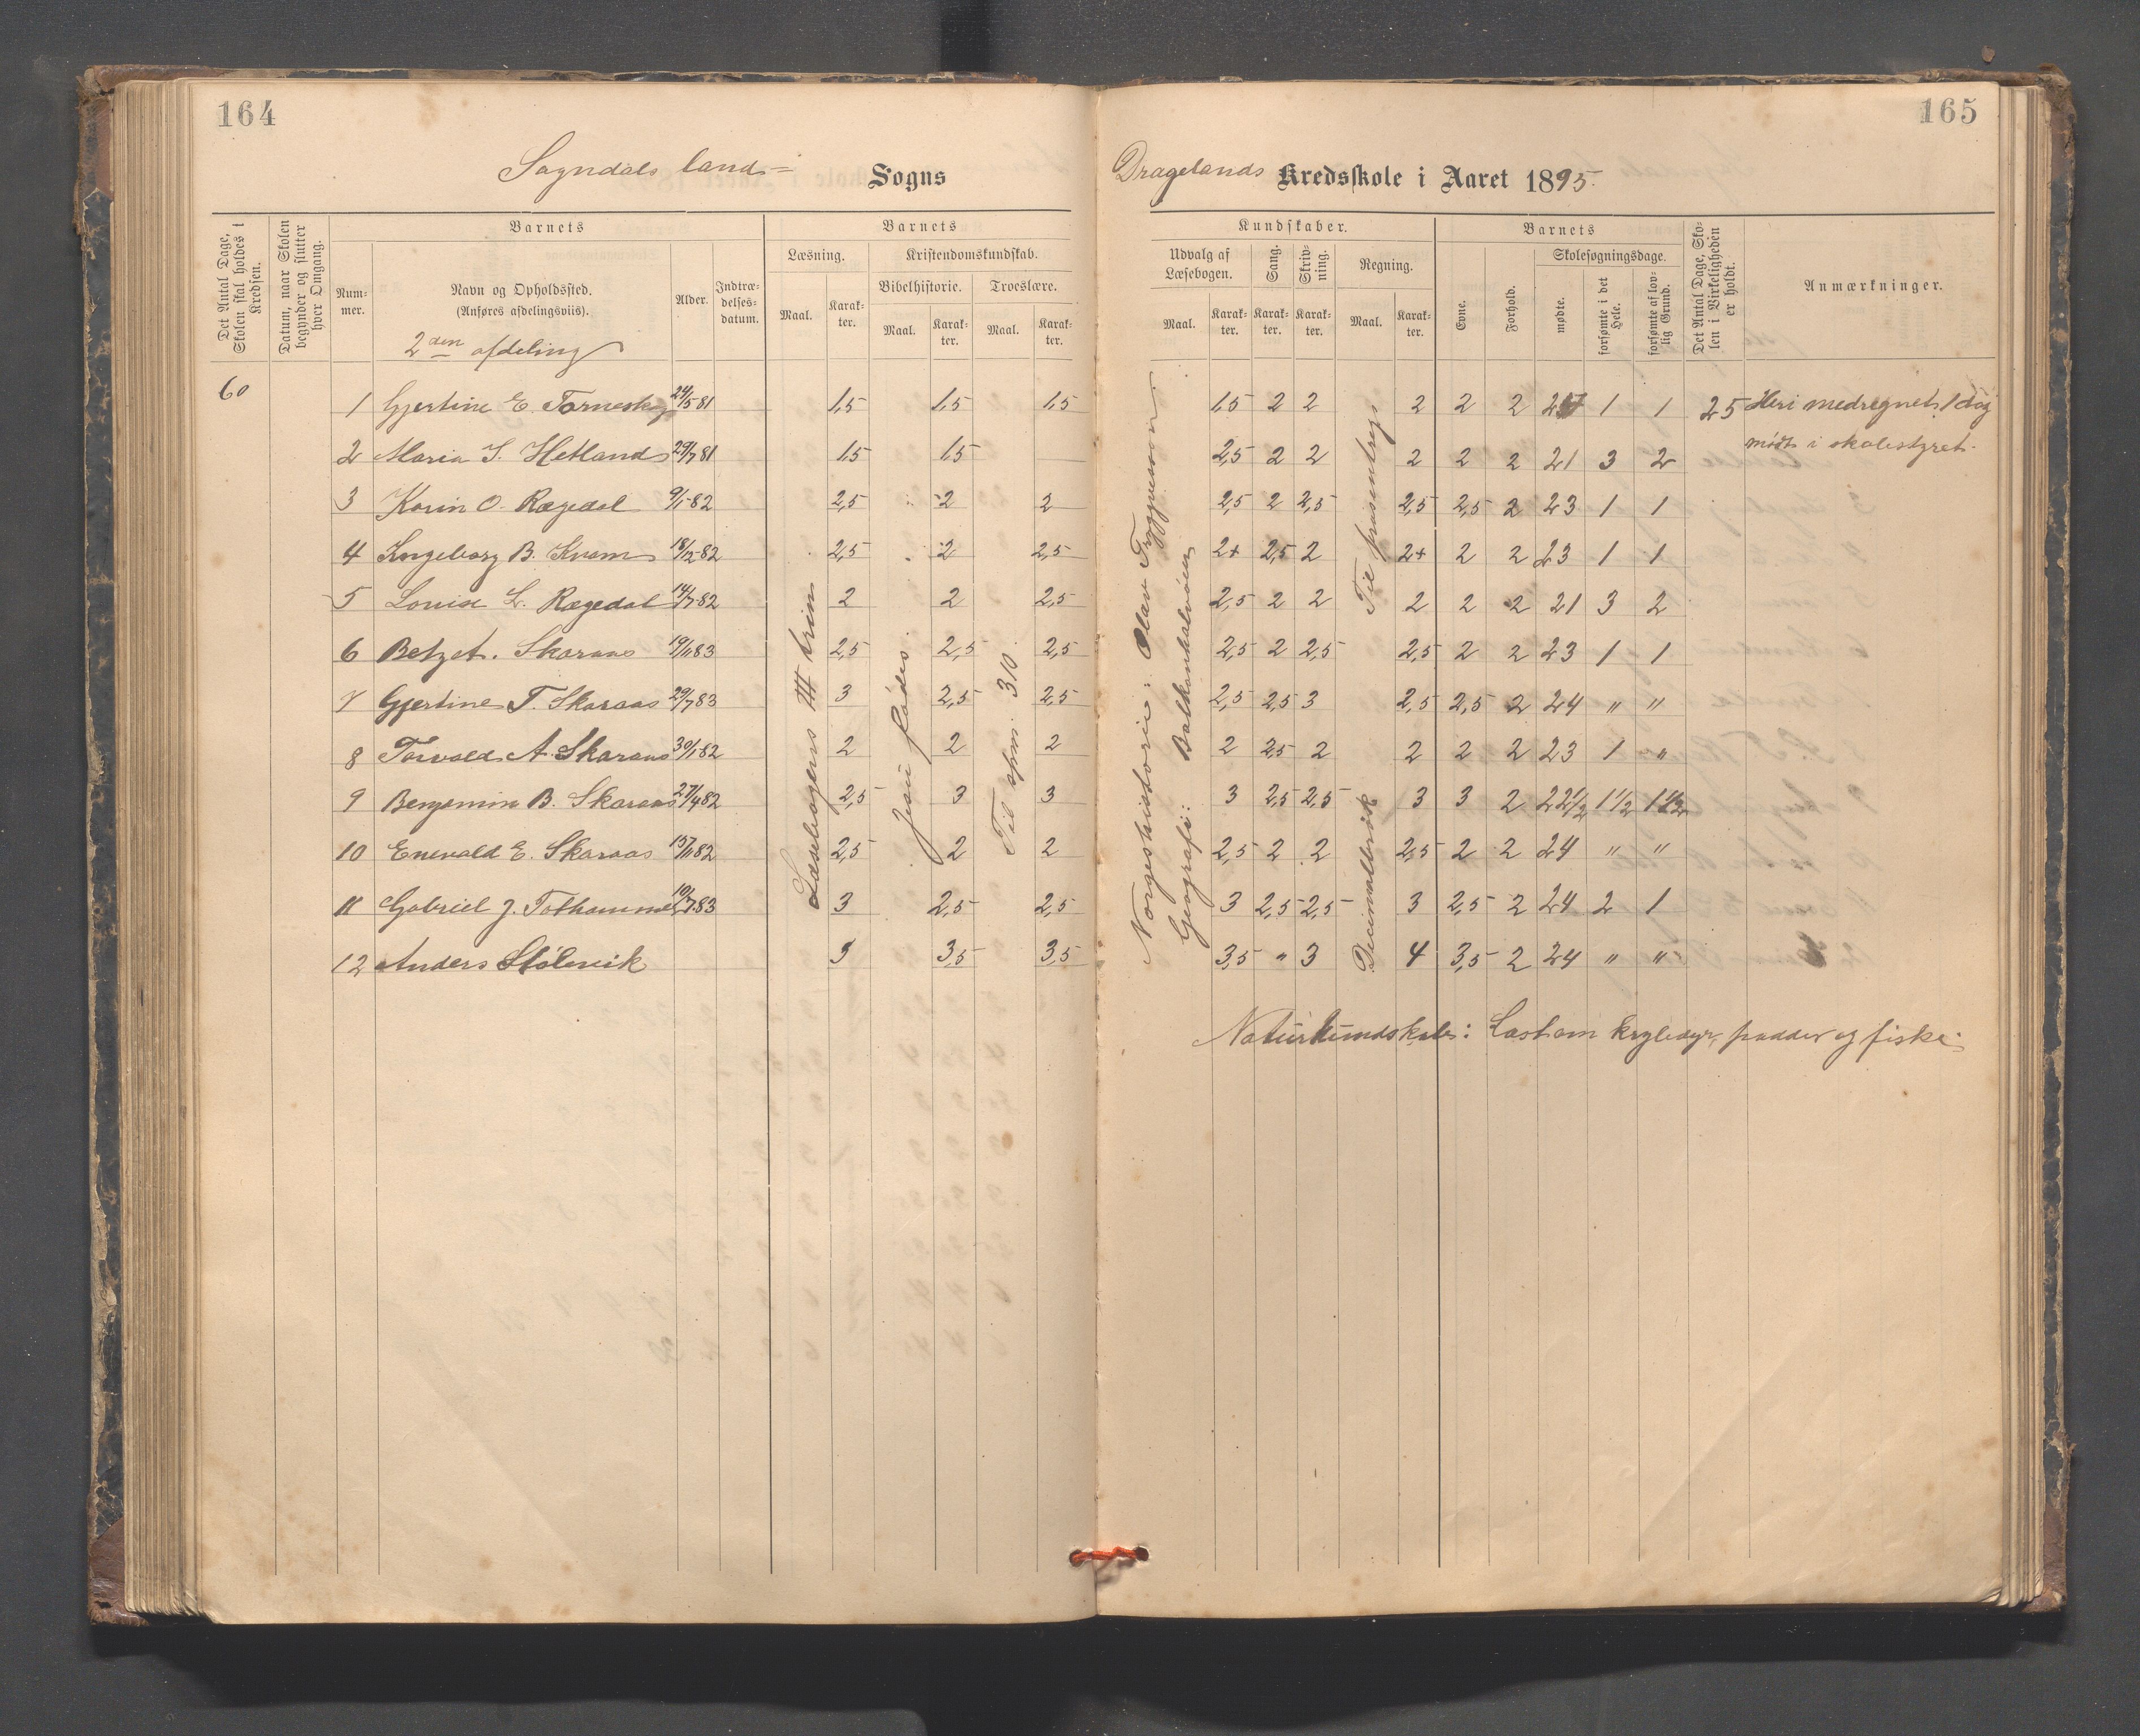 164
Sogndals land- Sogns
Det Antal Dage, Skolen skal holdes i Kredsen.
Datum, naar Skolen begynder og slutter hver Omgang.
Barnets
Num-mer.
Navn og Opholdssted.
(Anføres afdelingsviis).
2den afdeling
Alder.
Indtræ-delses-datum.
Barnets
Læsning.
Kristendomskundskab.
Bibelhistorie. Troeslære.
Maal. Karak-ter. Maal. Karak-ter. Maal. Karak-ter.
60
1 Gjertine E. Torneskog 24/5 81 1,5 1,5 1,5
2 Maria S. Hetland 29/7 81 1,5 1,5
3 Karin O. Rægedal 9/1-82 2,5 2 2
4 Ingeborg B. Kvam 18/12-82 2,5 2 2,5
5 Louise L. Rægedal 14/7-82 2 2 2,5
6 Betzet. Skaraas 19/11 83 2,5 2,5 2,5
7 Gjertine T. Skaraas 29/7 83 3 2,5 2,5
8 Torvald A. Skaraas 30/1-82 2 2 2
9 Benjamin B. Skaraas 27/4 82 2,5 3 3
10 Enevald E. Skaraas 15/11 82 2,5 2 2
11 Gabriel J. Tothammer 19/7 83 3 2,5 2,5
12 Anders Stølsvik 3 3,5 3,5
Læsebogens III trin
Jesu fødes.
Til spm. 310.
165
Dragelands Kredsskole i Aaret 1895.
Kundskaber.
Udvalg af Læsebogen.
Sang.
Skriv-ning.
Regning.
Maal. Karak-ter. Karak-ter. Karak-ter. Maal. Karak-ter.
Barnets
Evne.
Forhold.
Skolesøgningsdage.
mødte.
forsømte i det Hele.
forsømte af lov-lig Grund.
Det Antal Dage, Sko-len i Virkeligheden er holdt.
Anmærkninger.
1,5 2 2 2 2 2 1 1 25 Heri medregnet 1 dag
2,5 2 2 2 2 2 21 3 2 mødt i skolestyret.
2,5 2 2,5 2,5 2,5 2 23 1 1
2+ 2,5 2 2+ 2 2 23 1 1
2,5 2 2 2 2 2 21 3 2
2,5 2 2,5 2,5 2 2 23 1 1
2,5 2,5 3 2,5 2,5 2 24 " "
2 2,5 2 2 2 2 23 1 "
3 2,5 2,5 3 3 2 22 1/2 1 1/2 1 1/2
2,5 2 2 2,5 2 2 24 " "
3 2,5 2,5 3 2,5 2 24 2 1
3,5 " 3 4 3,5 2 24 " "
Norgeshistorie: Olav Tryggvesøn.
Geografi: Balkanhalvøen
Til prosentreg.
Decimalbrøk
Naturkundskab: Læst om krybdyr, padder og fiske.